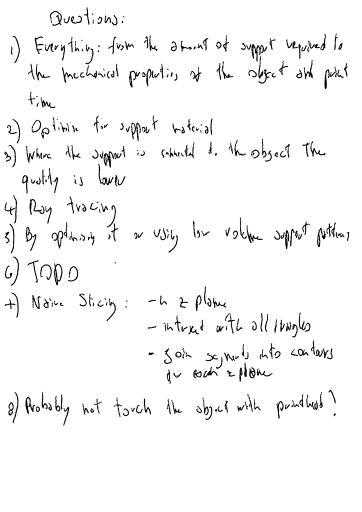 Questions:
1) Everything: from the amount of support required to
the mechanical properties of the object and print
time
2) Optimize for support material
3) Where the support is connected to the object The
quality is lower
4) Ray tracing
5) By optimising it or using low volume support patterns
6) TODO
7) Naive Slicing: - n z plane
- intersect with all triangles
- Join segments into contours
for each z plane
8) Probably not touch the object with printhead?